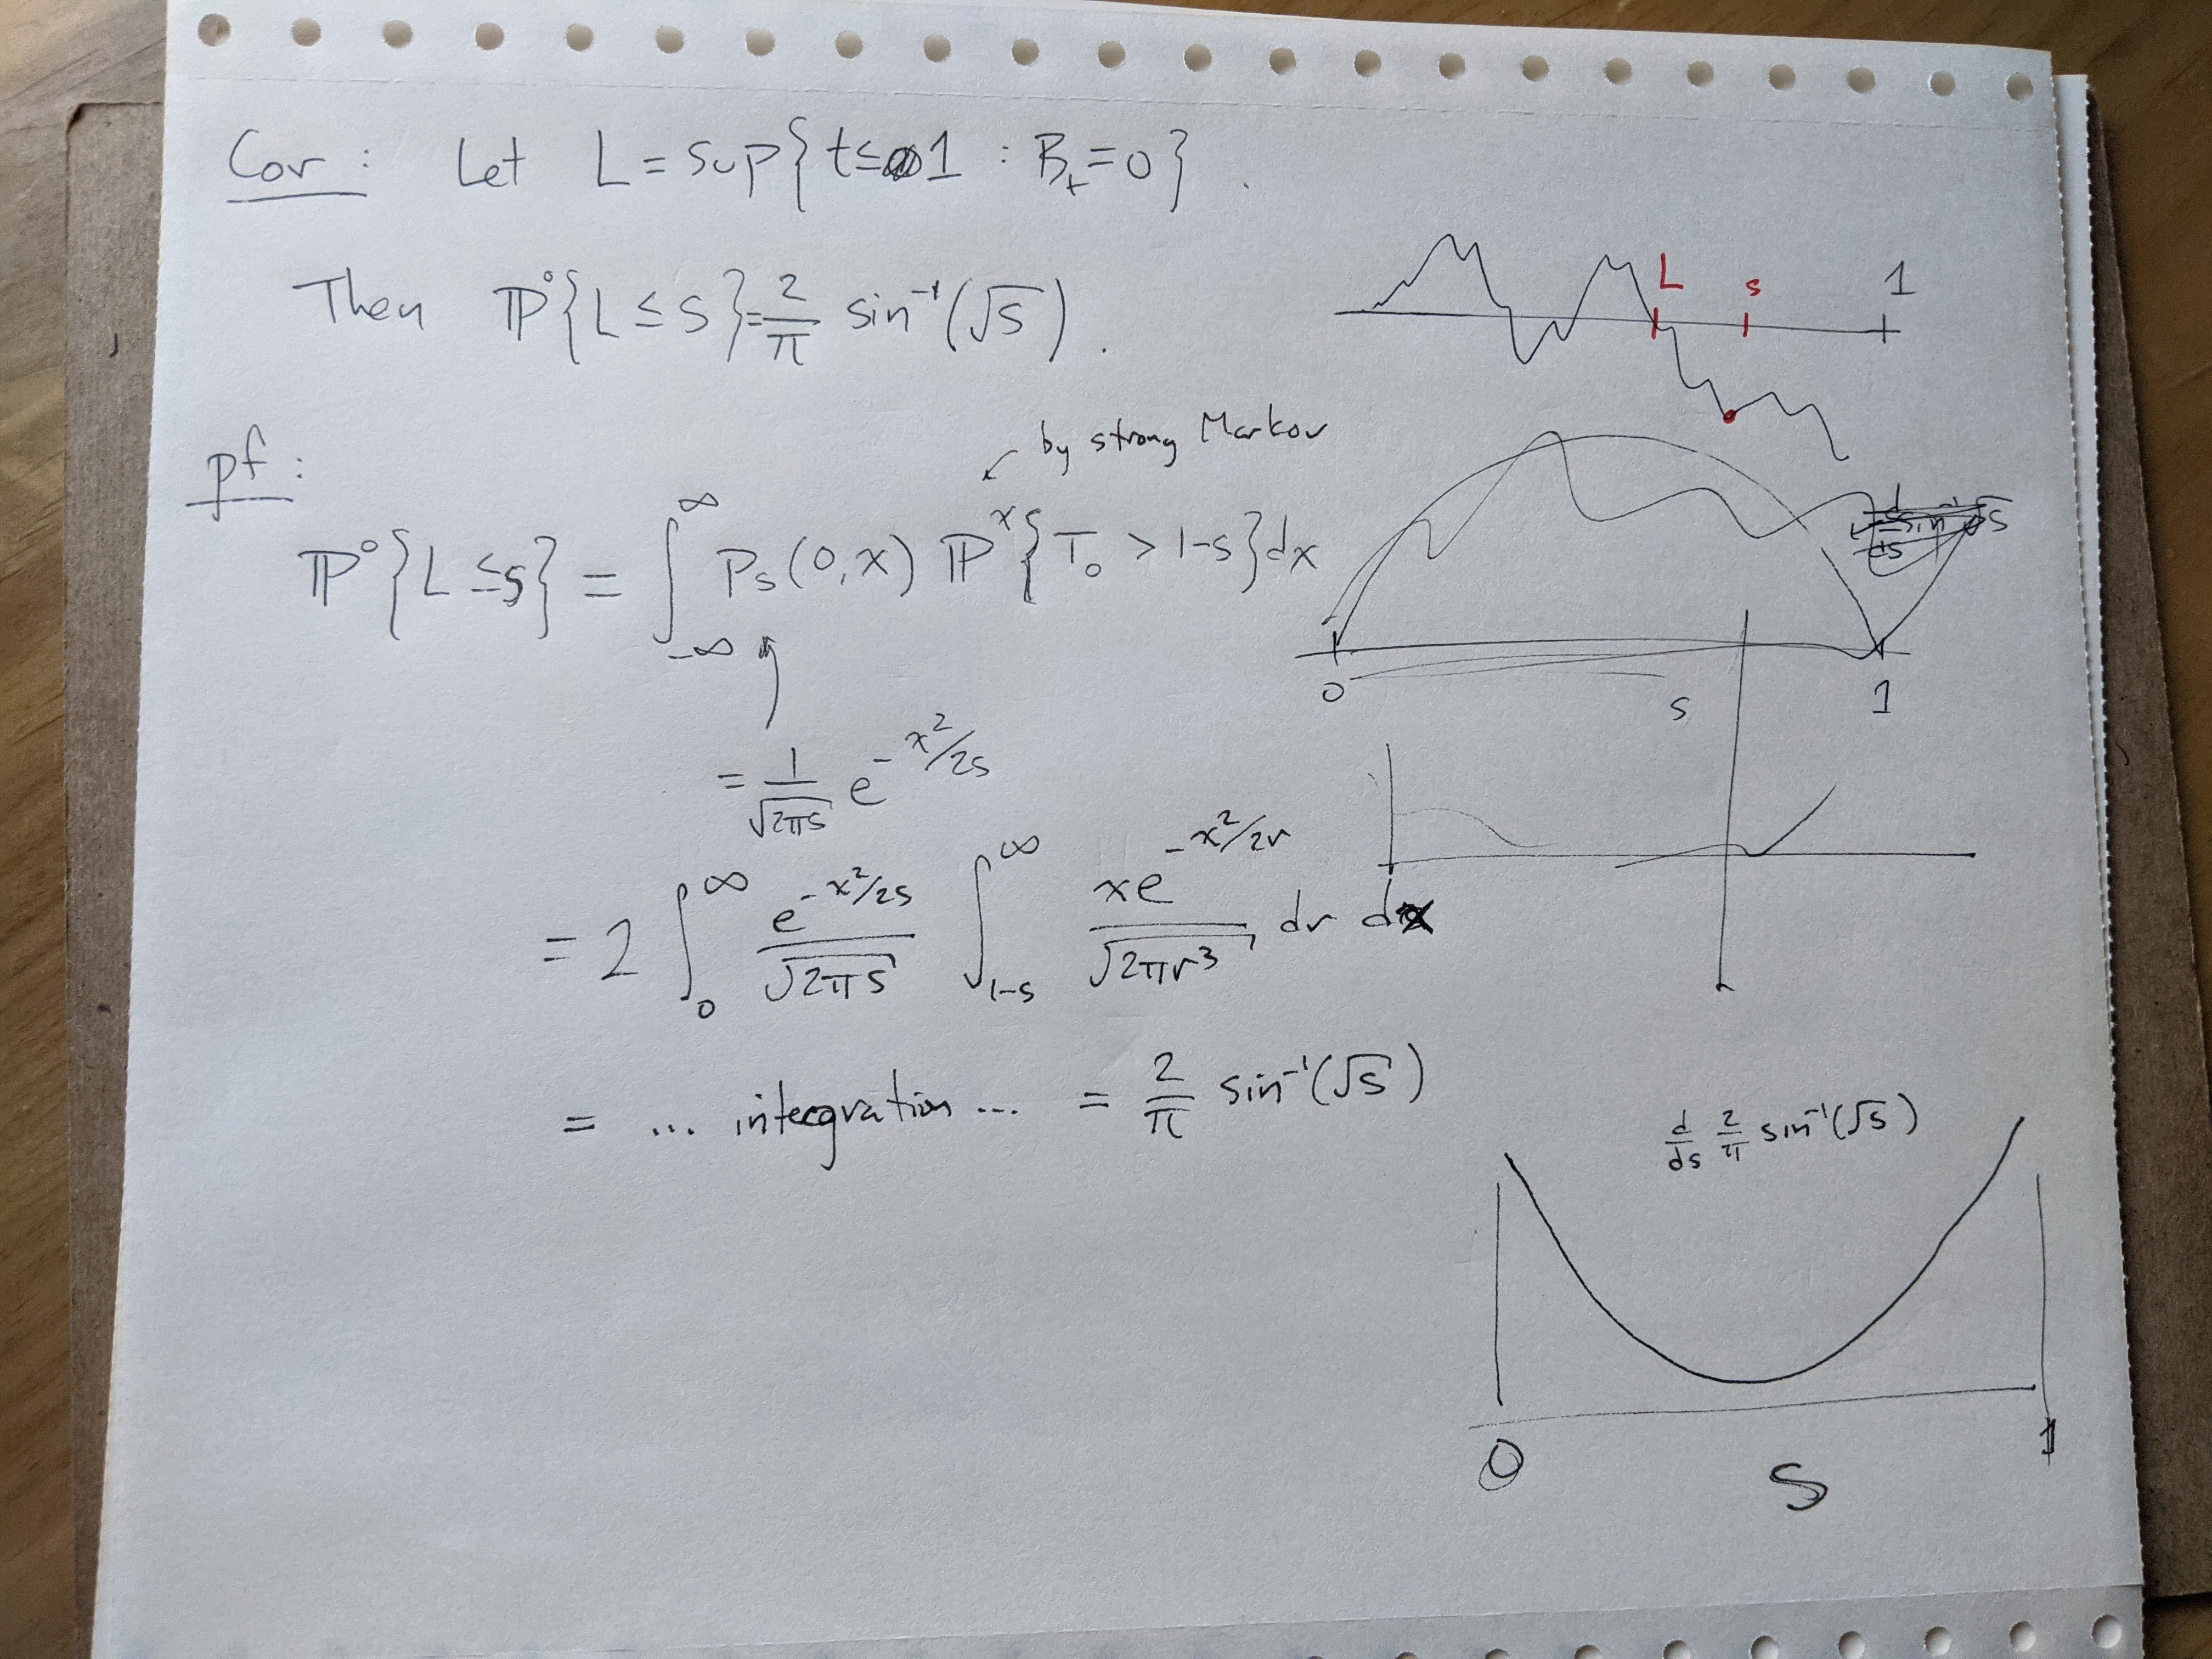 Cor: Let L = sup{t≤1 : B_t=0}.
Then ℙ⁰{L ≤ s}= 2/π sin⁻¹(√s).
L s 1
pf:
by strong Markov
ℙ⁰{L ≤s} = ∫_{-∞}^{∞} p_s(0,x) ℙ^x{T_0 > 1-s}dx
d/ds sin⁻¹ √s
0 s 1
= 1/√(2πs) e^{-x²/2s}
= 2 ∫_0^∞ e^{-x²/2s}/√(2πs) ∫_{1-s}^∞ xe^{-x²/2r}/√(2πr³) dr dx
= ... integration ... = 2/π sin⁻¹(√s)
d/ds 2/π sin⁻¹(√s)
0 s 1